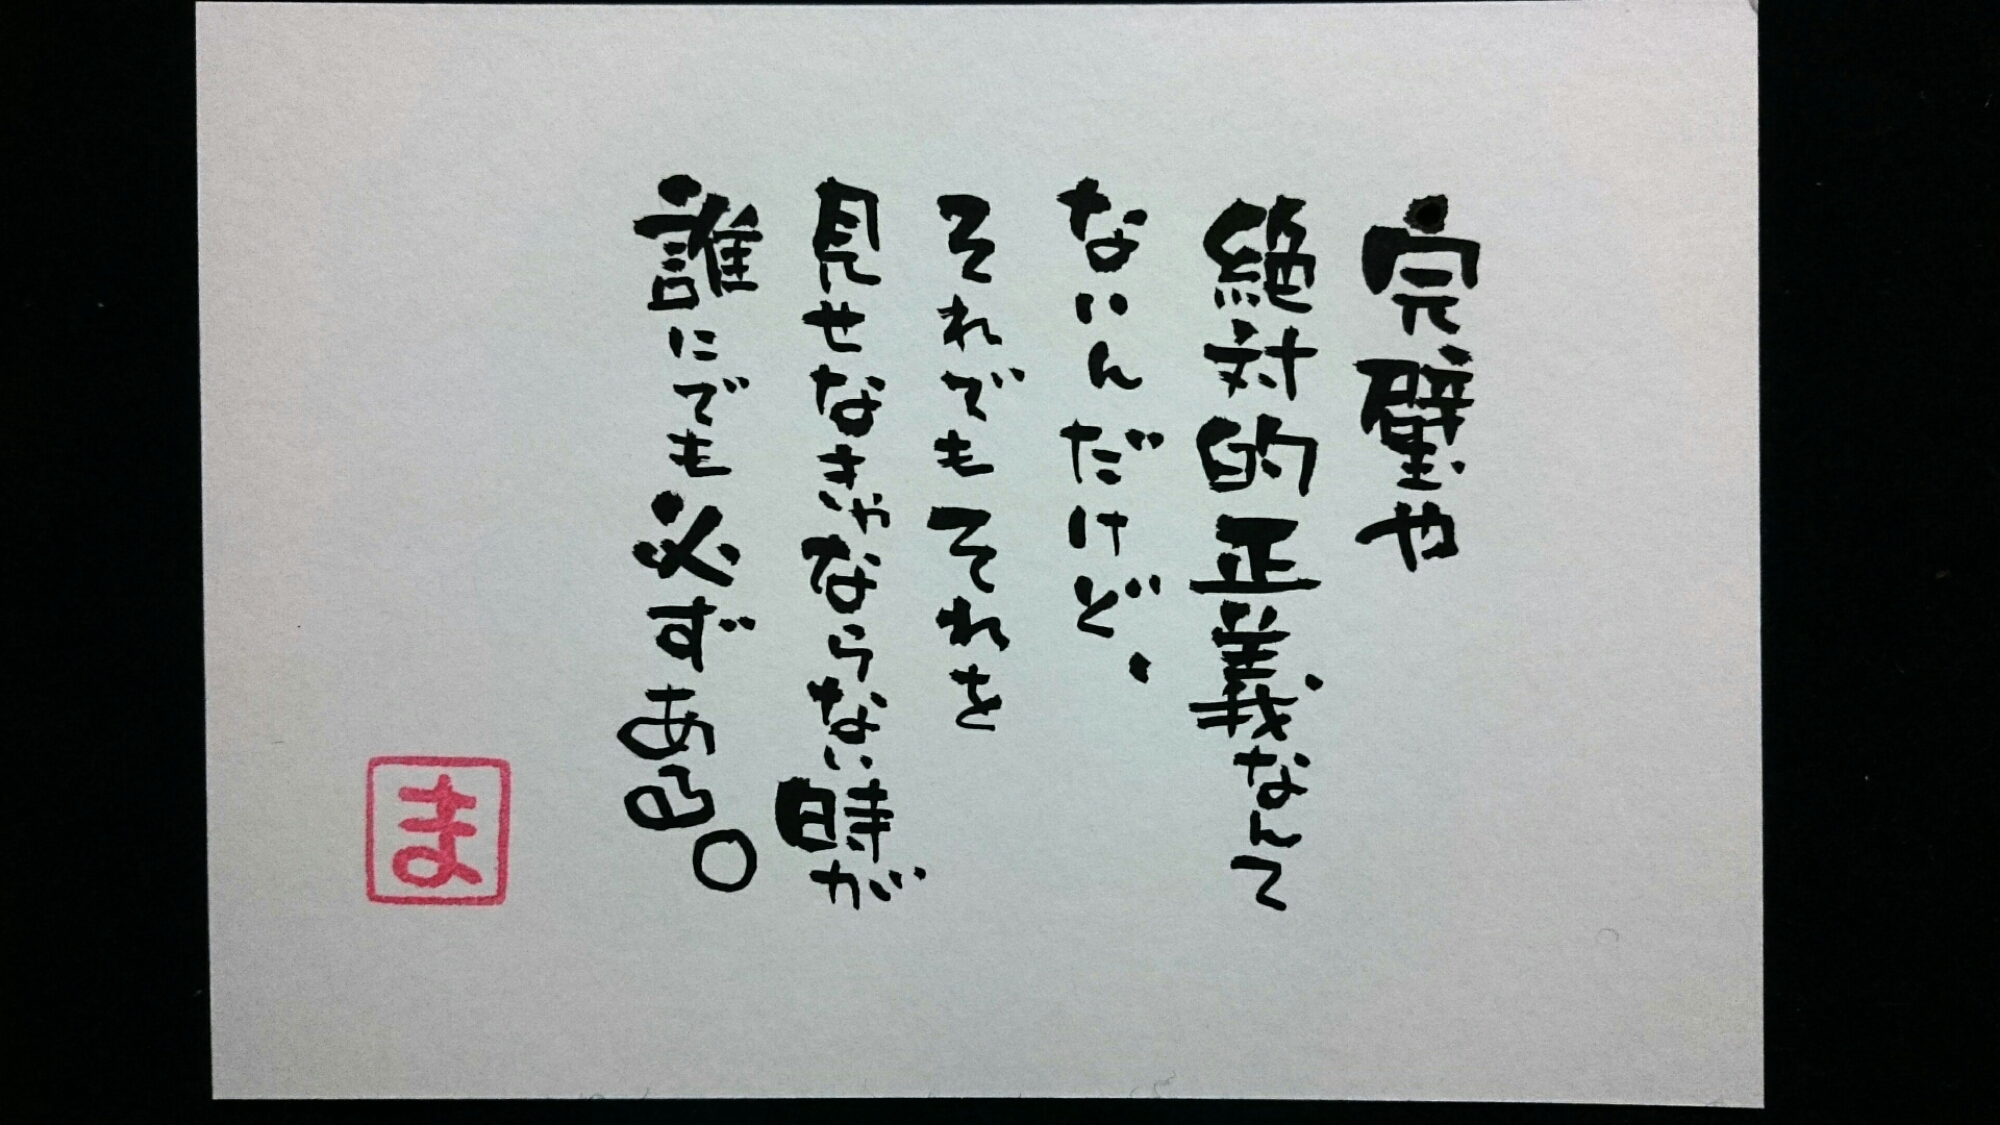 完璧や
絶対的正義なんて
ないんだけど、
それでもそれを
見せなきゃならない時が
誰にでも必ずある。
ま